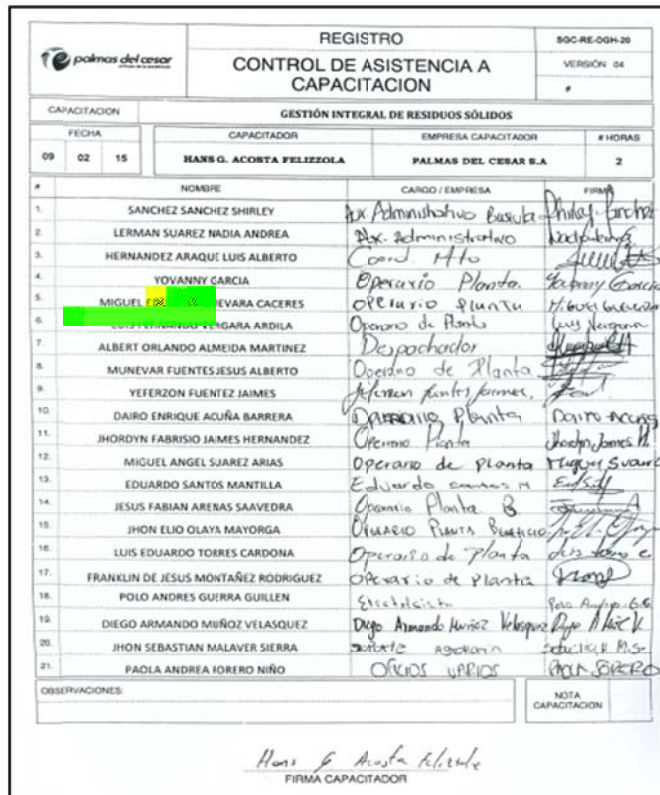 REGISTRO
SGC-RE-DGH-20
palmas del cesar
CONTROL DE ASISTENCIA A CAPACITACION
VERSIÓN 04
#
CAPACITACION GESTIÓN INTEGRAL DE RESIDUOS SÓLIDOS
FECHA CAPACITADOR EMPRESA CAPACITADOR # HORAS
09 02 15 HANS G. ACOSTA FELIZZOLA PALMAS DEL CESAR S.A 2
# NOMBRE CARGO / EMPRESA FIRMA
1. SANCHEZ SANCHEZ SHIRLEY Aux Administrativo Bascula Shirley Sanchez
2. LERMAN SUAREZ NADIA ANDREA Aux. Administrativo
3. HERNANDEZ ARAQUE LUIS ALBERTO Coord. Mto
4. YOVANNY GARCIA Operario Planta. Yovanny Garcia
5. MIGUEL GUEVARA CACERES operario planta Miguel Guevara
6. VERGARA ARDILA Operario de Planta Luis Vergara
7. ALBERT ORLANDO ALMEIDA MARTINEZ Despachador
8. MUNEVAR FUENTES JESUS ALBERTO Operario de Planta
9. YEFERZON FUENTEZ JAIMES
10. DAIRO ENRIQUE ACUÑA BARRERA Operario Planta Dairo Acuña
11. JHORDYN FABRISIO JAIMES HERNANDEZ Operario Planta Jhordyn Jaimes H.
12. MIGUEL ANGEL SUAREZ ARIAS Operario de Planta Miguel Suarez
13. EDUARDO SANTOS MANTILLA Eduardo santos M
14. JESUS FABIAN ARENAS SAAVEDRA Operario Planta B
15. JHON ELIO OLAYA MAYORGA Operario Planta Beneficio
16. LUIS EDUARDO TORRES CARDONA Operario de Planta Luis torres c
17. FRANKLIN DE JESUS MONTAÑEZ RODRIGUEZ Operario de Planta
18. POLO ANDRES GUERRA GUILLEN Electricista Polo Andres G.G
19. DIEGO ARMANDO MUÑOZ VELASQUEZ Diego Armando Muñoz Velasquez
20. JHON SEBASTIAN MALAVER SIERRA
21. PAOLA ANDREA FORERO NIÑO OFICIOS VARIOS PAOLA FORERO
OBSERVACIONES: NOTA CAPACITACION
Hans G Acosta Felizzola
FIRMA CAPACITADOR